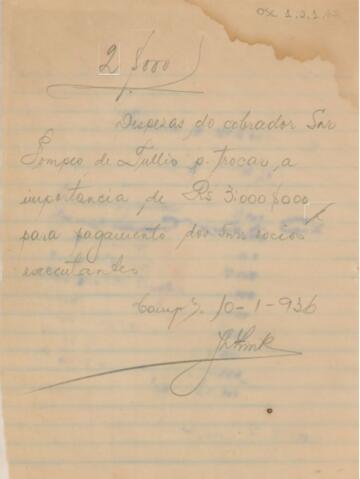 OSC 1.2.1.
2$000
Despesas do cobrador Snr
Pompeo de Tullio p. trocar a
importancia de Rs 3:000$000
para pagamento dos Snrs socios
executantes
Camps. 10-1-936